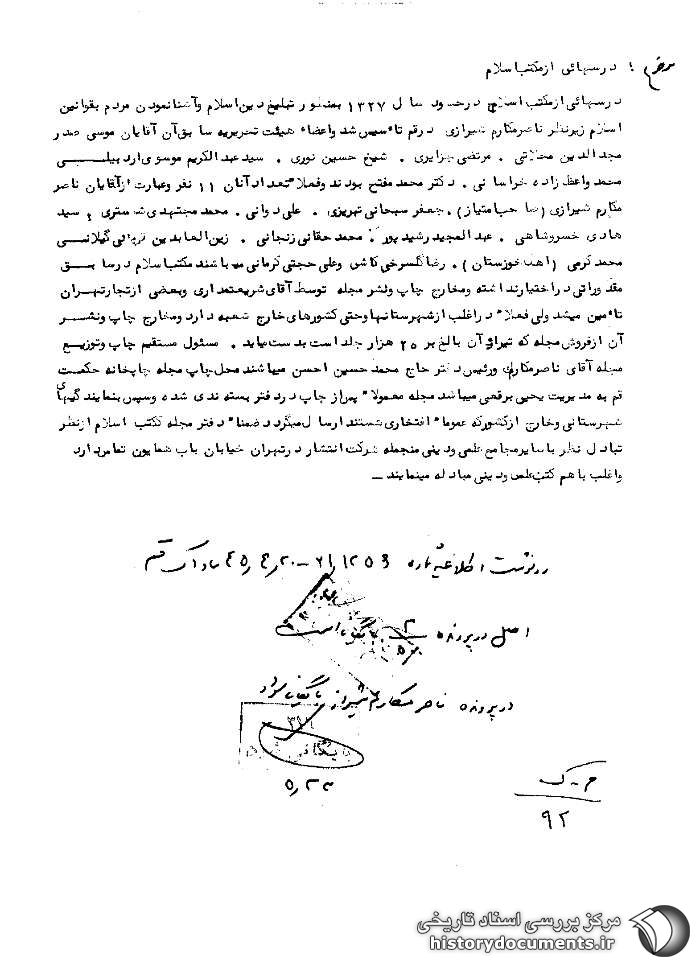 موضوع : درسهائی از مکتب اسلام
درسهائی از مکتب اسلام در حدود سال ۱۳۲۷ بمنظور تبلیغ دین اسلام و آشنا نمودن مردم بقوانین
اسلام زیر نظر ناصر مکارم شیرازی در قم تاسیس شد و اعضاء هیئت تحریریه سابق آن آقایان موسی صدر
مجدالدین محلاتی . مرتضی جزایری . شیخ حسین نوری . سید عبدالکریم موسوی اردبیلی
محمد واعظ زاده خراسانی . دکتر محمد مفتح بودند و فعلا تعداد آنان ۱۱ نفر و عبارت از آقایان ناصر
مکارم شیرازی (صاحب امتیاز) . جعفر سبحانی تبریزی . علی دوانی . محمد مجتهدی شبستری و سید
هادی خسروشاهی . عبدالمجید رشید پور . محمد حقانی زنجانی . زین العابدین قربانی گیلانی
محمد کرمی (اهل خوزستان) . رضا گلسرخی کاشی و علی حجتی کرمانی میباشند مکتب اسلام در سابق
مقدوراتی در اختیار نداشته و مخارج چاپ و نشر مجله توسط آقای شریعتمداری و بعضی از تجار تهران
تامین میشد ولی فعلا در اغلب از شهرستانها و حتی کشورهای خارج شعبه دارد و مخارج چاپ و نشر
آن از فروش مجله که تیراژ آن بالغ بر ۲۵ هزار جلد است بدست میاید . مسئول مستقیم چاپ و توزیع
مجله آقای ناصر مکارم و رئیس دفتر حاج محمد حسین احسن میباشند محل چاپ مجله چاپخانه حکمت
قم به مدیریت یحیی برقعی میباشد مجله معمولا پس از چاپ در دفتر بسته بندی شده و سپس بنمایندگیهای
شهرستانی و خارج از کشور که عموما افتخاری هستند ارسال میگردد ضمنا دفتر مجله مکتب اسلام از نظر
تبادل نظر با سایر مجامع علمی و دینی منجمله شرکت انتشار در تهران خیابان باب همایون تماس دارد
و اغلب با هم کتب علمی و دینی مبادله مینمایند ــ
رونوشت اطلاعیه شماره
ساواک قم
اصل در پرونده
بایگانی است
در پرونده ناصر مکارم شیرازی بایگانی شود
۵٫۲۳
۹۲
مرکز بررسی اسناد تاریخی
historydocuments.ir